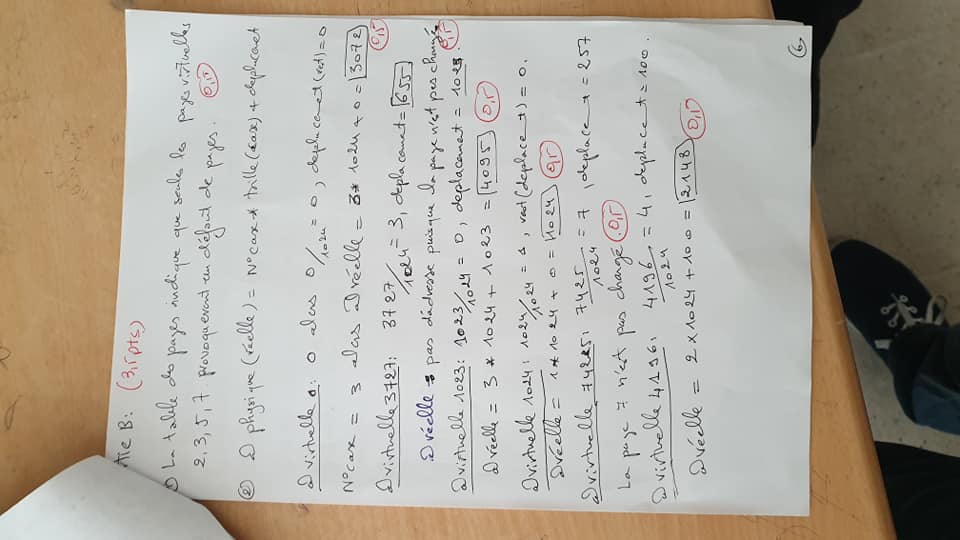 tie B: (3,5pts)
1) La table des pages indique que seules les pages virtuelles
2, 3, 5, 7 provoqueront un défaut de pages. 0,5
2) @ physique (réelle) = N° case * taille (case) + deplacement
@ virtuelle 0: 0 alors 0/1024 = 0, deplacemet (rest) = 0
N° case = 3 alors @ réelle = 3 * 1024 + 0 = 3072
0,5
@ virtuelle 3727: 3727/1024 = 3, deplacemet = 655
@ réelle → pas d'adresse puisque la page n'est pas chargé. 0,5
@ virtuelle 1023: 1023/1024 = 0, deplacement = 1023.
@ réelle = 3 * 1024 + 1023 = 4095 0,5
@ virtuelle 1024: 1024/1024 = 1, rest (deplacet) = 0.
@ réelle = 1 * 1024 + 0 = 1024 0,5
@ virtuelle 7425: 7425/1024 = 7, deplacet = 257
La page 7 n'est pas chargé. 0,5
@ virtuelle 4196: 4196/1024 = 4, deplacet = 100.
@ réelle = 2 x 1024 + 100 = 2148 0,5
6